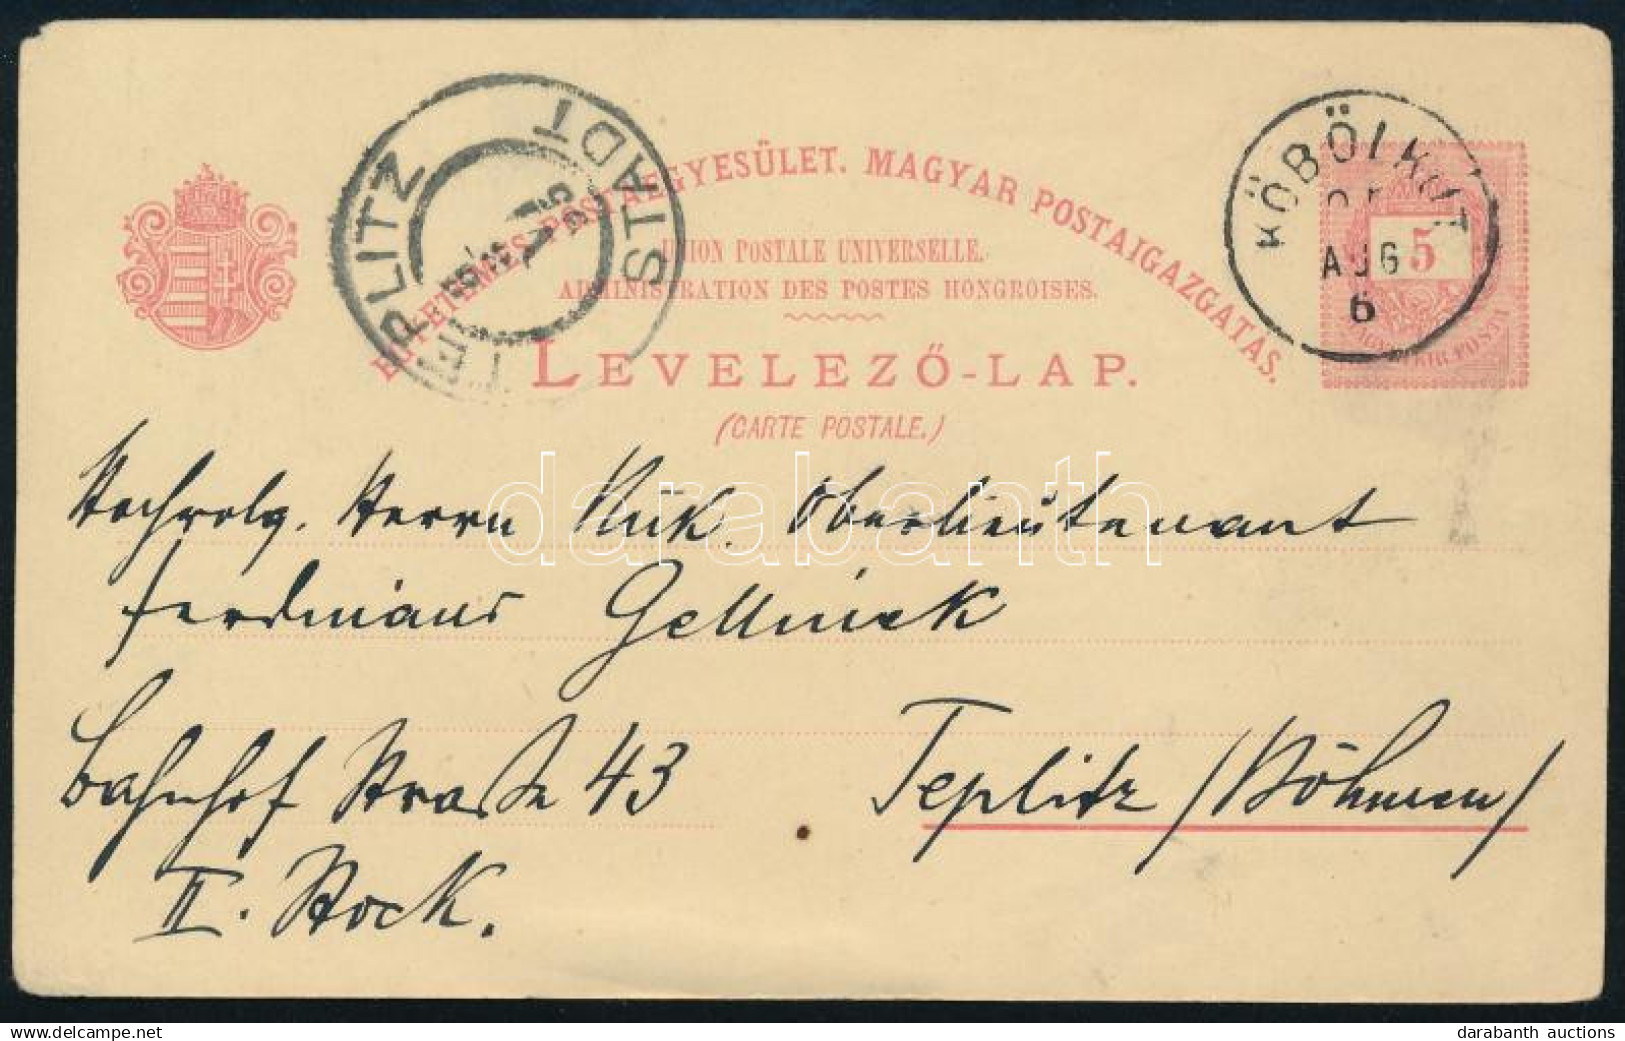 EGYETEMES POSTAEGYESÜLET. MAGYAR POSTAIGAZGATÁS.
UNION POSTALE UNIVERSELLE.
ADMINISTRATION DES POSTES HONGROISES.
LEVELEZŐ-LAP.
(CARTE POSTALE.)
TEPLITZ STADT
KÖBÖLKUT
AUG
6
5
Herrn Oberlieutenant
Ferdinand
Bahnhof Straße 43 Teplitz /Böhmen/
II. Stock.
darabanth
darabanth auctions